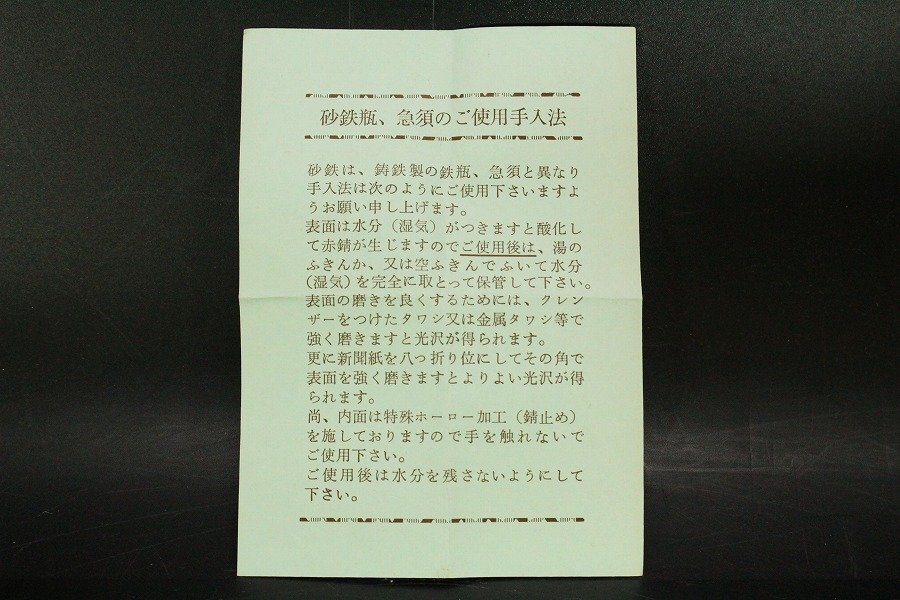 砂鉄瓶、急須のご使用手入法
砂鉄は、鋳鉄製の鉄瓶、急須と異なり
手入法は次のようにご使用下さいますよ
うお願い申し上げます。
表面は水分（湿気）がつきますと酸化し
て赤錆が生じますのでご使用後は、湯の
ふきんか、又は空ふきんでふいて水分
（湿気）を完全に取とって保管して下さい。
表面の磨きを良くするためには、クレン
ザーをつけたタワシ又は金属タワシ等で
強く磨きますと光沢が得られます。
更に新聞紙を八っ折り位にしてその角で
表面を強く磨きますとよりよい光沢が得
られます。
尚、内面は特殊ホーロー加工（錆止め）
を施しておりますので手を触れないで
ご使用下さい。
ご使用後は水分を残さないようにして
下さい。